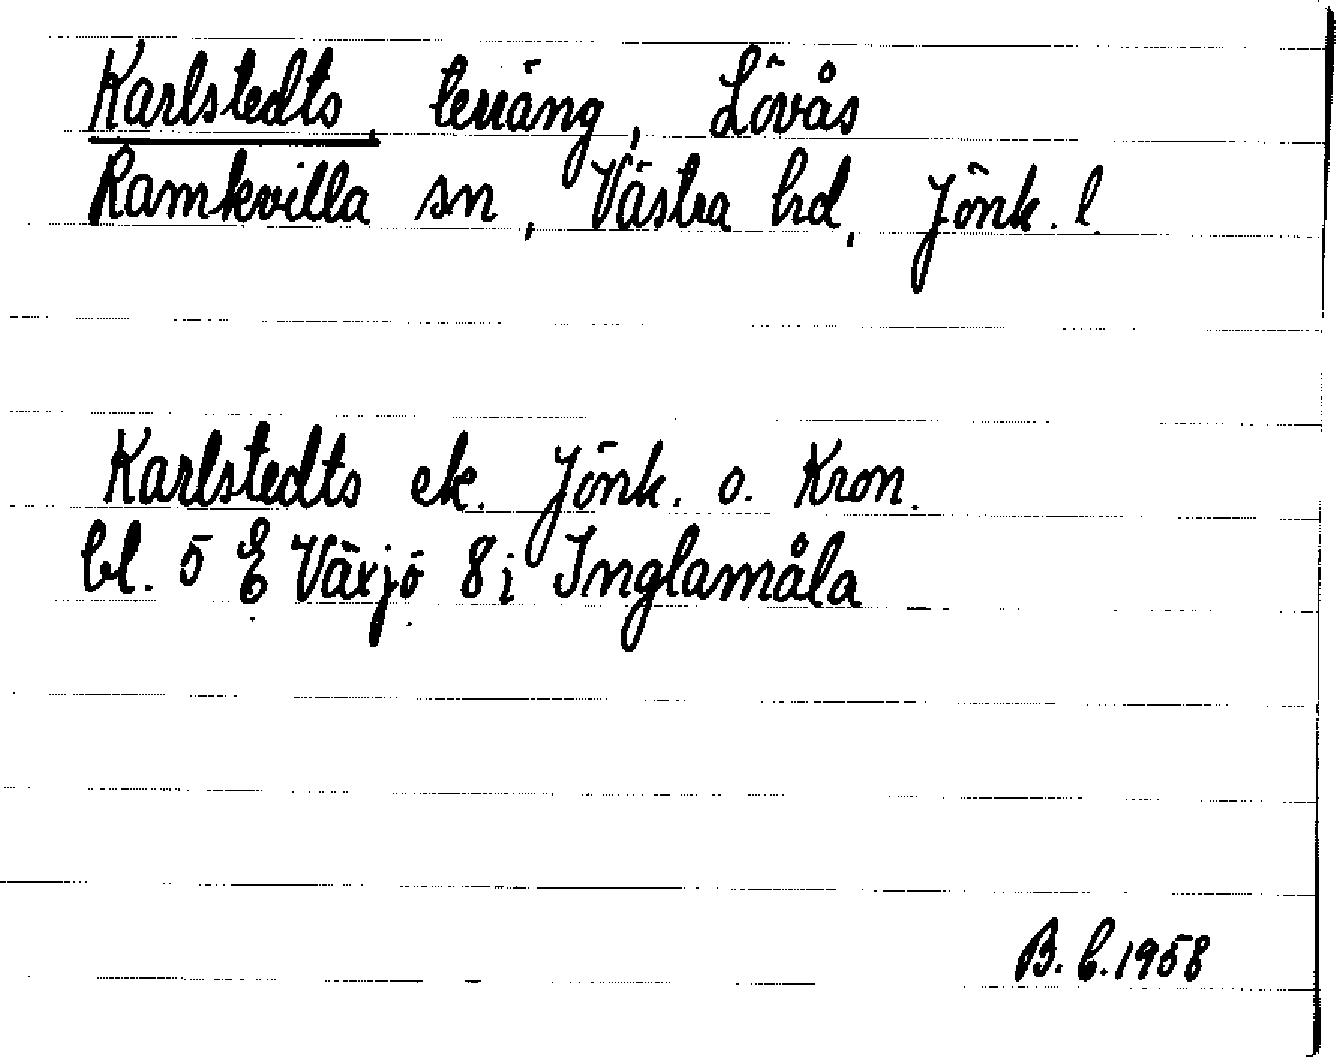 Karlstedts, terräng, Lövås
Ramkvilla sn, Västra hd, Jönk. l.
Karlstedts ek. Jönk. o. Kron.
bl. 5 E Växjö 8 i Inglamåla
B. C. 1958